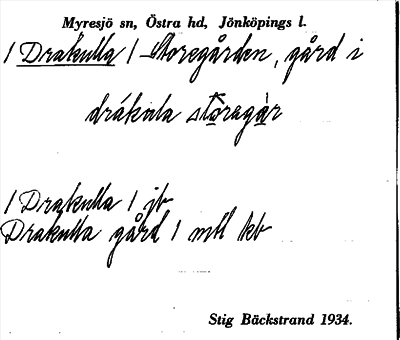 Myresjö sn, Östra hd, Jönköpings l.
/ Drakulla / Storegården, gård i
drákula stòregàr
/ Drakulla / jb
Drakulla gård / mtl kb
Stig Bäckstrand 1934.